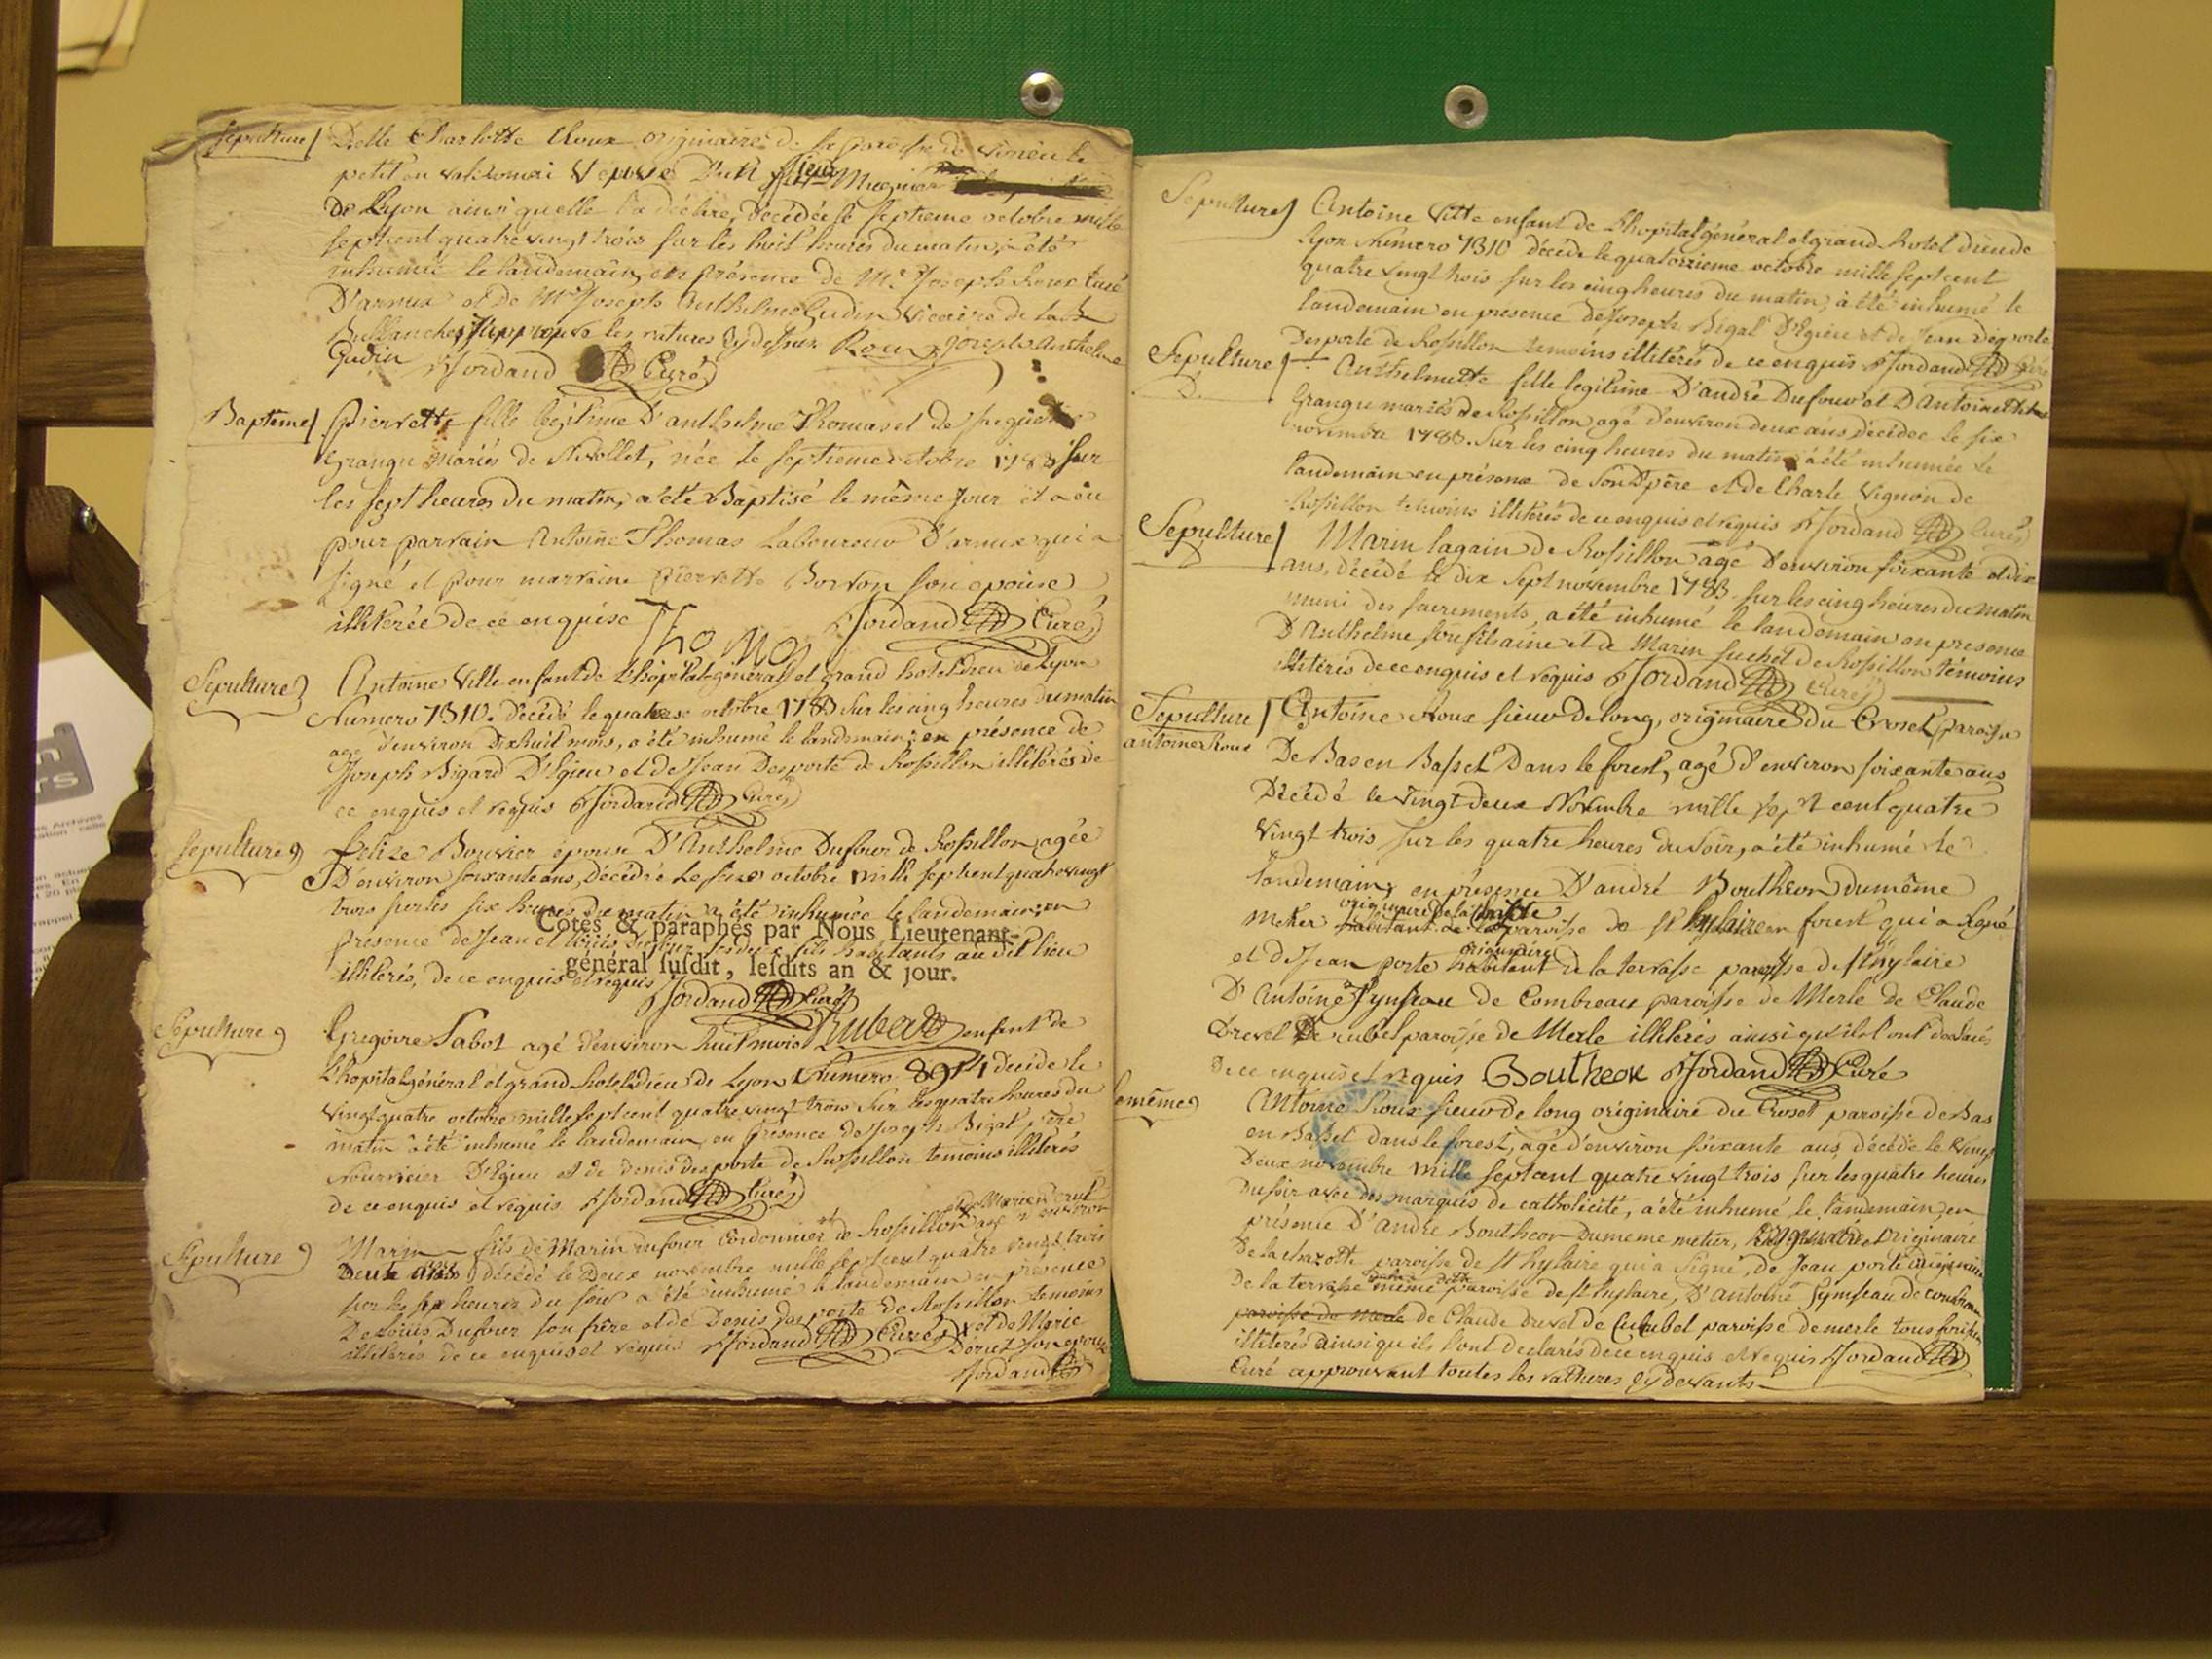 Sepulture
Delle Charlotte Roux originaire de la paroisse de
petit en valromai Epouse Du Sr sieur Mugnier
De Lyon ainsi quelle l'a déclaré, Décédée le septieme octobre mille
sept cent quatre vingt trois sur les huit heures du matin, a été
inhumée le landemain en présence de Mre Joseph Roux curé
D'arnux et de Mre Joseph Anthelme Gudin vicaire de
J'approuve les ratures cy dessus Roux Joseph Anthelme
Gudin Jordand Curé
Baptême
Pierrette fille légitime D'anthelme Thomas et de
Grangu mariés de Nivollet, née le septieme octobre 1783 sur
les sept heures du matin, a été Baptisé le même Jour et a eu
pour parrain Antoine Thomas Laboureur D'arnux qui a
signé et pour marraine pierrette Borron son epouse
illiterée de ce enquise Thomas Jordand Curé
Sepulture
Antoine Ville enfant de L'hopital general et grand hotel Dieu de Lyon
Numero 7310. Décédé le quatorse octobre 1783 Sur les cinq heures du matin
agé d'environ Dixhuit mois, a été inhumé le landemain en présence de
Joseph Bigard D'Egieu et de Jean Desporte de Rossillon illitérés de
ce enquis et requis Jordand Curé
Sepulture
Felize Bouvier épouse D'Anthelme Dufour de Rossillon, agée
D'environ soixante ans, Décédée Le seize octobre mille sept cent quatre vingt
trois sur les six heures du matin a été inhumée le landemain, en
Cotés & paraphés par Nous Lieutenant-
présence de Jean et Louis Dufour ses deux fils habitants au dit lieu
général susdit, lesdits an & jour.
illiterés, de ce enquis et requis Jordand Curé
Sepulture
Gregoire Sabot agé d'environ huit mois enfant de
L'hopital général et grand hotel Dieu de Lyon Numero décédé le
vingt quatre octobre mille sept cent quatre vingt trois sur les quatre heures du
matin a été inhumé le landemain, en présence de Joseph Bigat père
nourricier D'Egieu et de Denis desporte de Rossillon temoins illiterés
de ce enquis et requis Jordand Curé
Sepulture
Marin fils de Marin dufour Cordonnier de Rossillon agé d'environ
Deux ans Décédé le Deux novembre mille sept cent quatre vingt trois
sur les six heures du soir a été inhumé le landemain en présence
De Louis Dufour son frère et de Denis Desporte de Rossillon temoins
illiterés de ce enquis et requis Jordand Curé et de Marie
son epouse
Jordand
Sepulture
Antoine Ville enfant de L'hopital général et grand hotel dieu de
Lyon Numero 7310 Décédé le quatorzieme octobre mille sept cent
quatre vingt trois sur les cinq heures du matin, a été inhumé le
landemain en présence de Joseph Bigal D'Egieu et de Jean Desporte
Desporte de Rossillon temoins illitérés de ce enquis Jordand Curé
Sepulture
Anthelmette fille légitime D'andré Dufour et D'Antoinette
Grangu mariés de Rossillon agé d'environ deux ans, Décédée le six
novembre 1783. Sur les cinq heures du matin a été inhumée le
landemain en présence de son père et de Charle Vignon de
Rossillon temoins illiterés de ce enquis et requis Jordand Curé
Sepulture
Marin lagain de Rossillon agé D'environ soixante et dix
ans, décédé le dix sept novembre 1783 sur les cinq heures du matin
muni des sacrements, a été inhumé le landemain en presence
D'Anthelme son fils ainé et de Marin suchet de Rossillon témoins
illitérés de ce enquis et requis Jordand Curé
Sepulture
antoine Roux
Antoine Roux sieur De long, originaire du Croset, paroisse
De Bas en Basset Dans le forest, agé D'environ soixante ans
Décédé le vingt deux Novembre mille sept cent quatre
vingt trois sur les quatre heures du soir, a été inhumé le
landemain, en présence D'andré Boutheon du même
originaire de la
metier habitant de la paroisse de st hylaire en forest qui a signé
originaire
et de Jean porte habitant de la terrasse paroisse de st hylaire
D'Antoine Fynseau de Combreau paroisse de Merle de Claude
Drevel De cubel paroisse de Merle illiterés ainsi qu'ils l'ont declarés
De ce enquis et requis Boutheon Jordand Curé
le même
Antoine Roux sieur de long originaire du Croset paroisse de Bas
en Basset dans le forest, agé d'environ soixante ans, décédé le vingt
Deux novembre mille sept cent quatre vingt trois sur les quatre heures
du soir avec des marques de catholicité, a été inhumé le landemain, en
présence D'andré Boutheon du meme metier, originaire
De la chazotte paroisse de st hylaire qui a signé, de Jean porte originaire
De la terrasse même paroisse de st hylaire, D'antoine Fynseau de
paroisse de merle de Claude drevel de Cubel paroisse de merle tous
illiterés ainsi qu'ils l'ont declarés de ce enquis et requis Jordand
Curé approuvant toutes les ratures cy devants